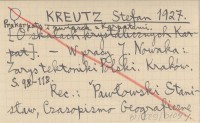 KREUTZ Stefan 1927.
[O skałach krystalicznych Kar-
pat]. - W pracy J. Nowaka:
Zarys tektoniki Polski. Kraków.
S. 98-118.
Rec.: Pawłowski Stani-
sław, Czasopismo Geograficzne